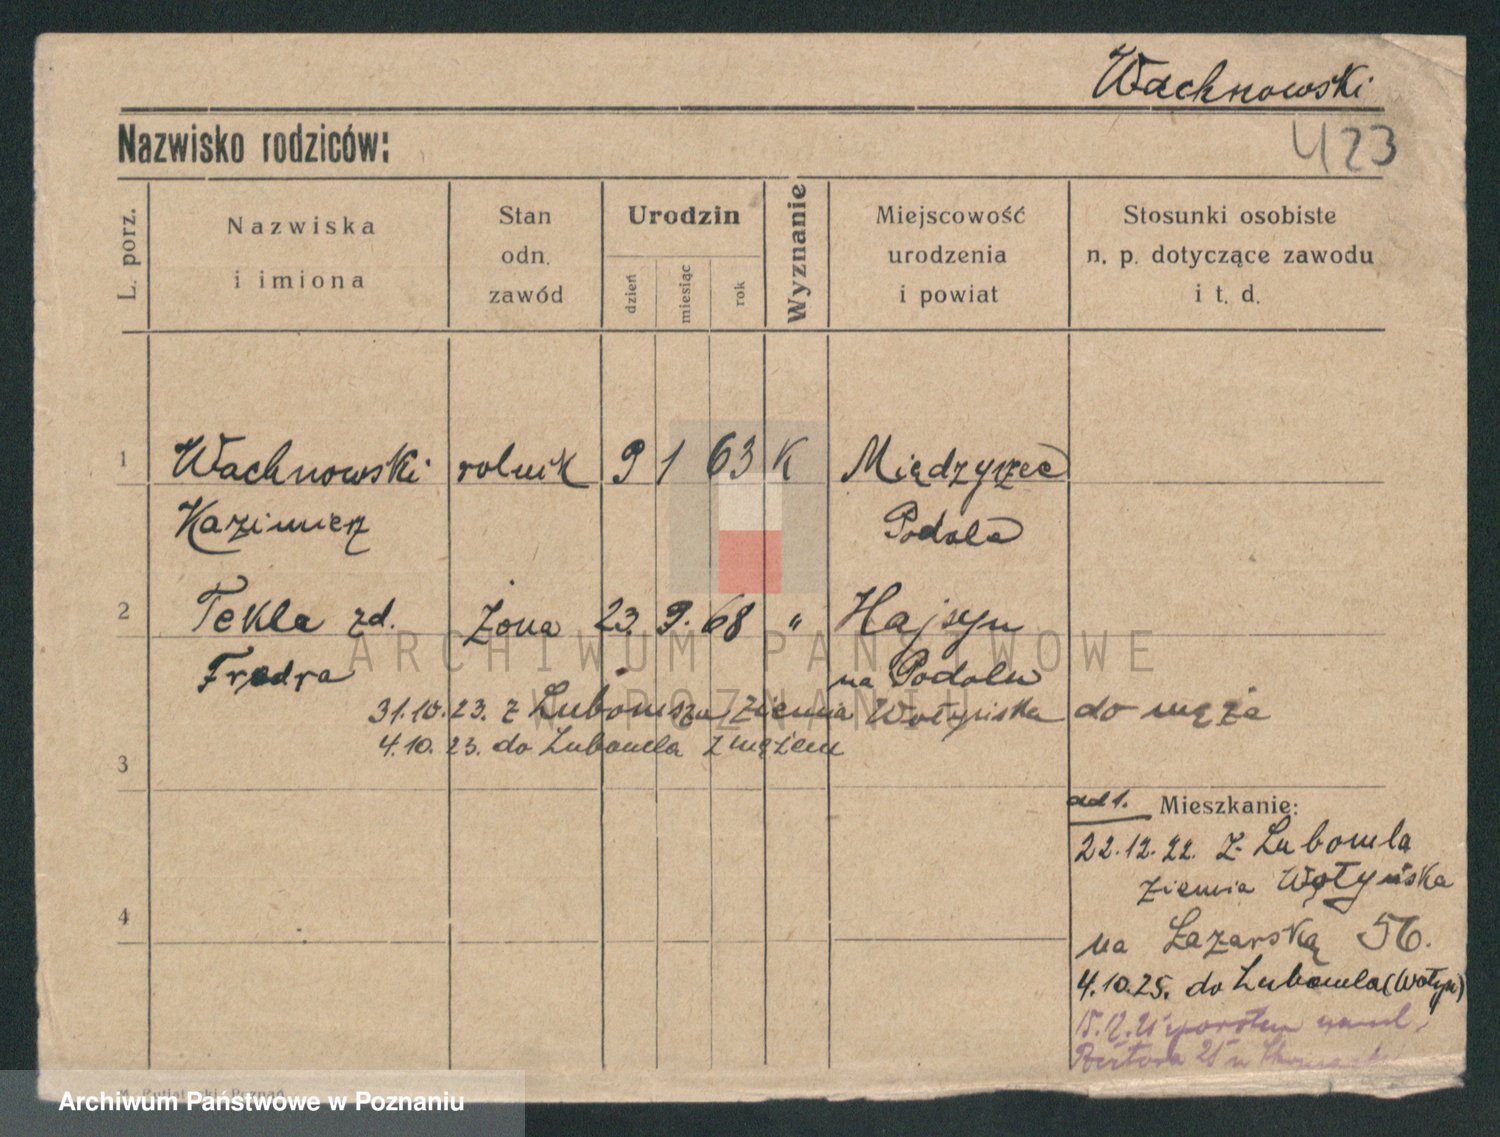 Wachnowski
Nazwisko rodziców:
423
L. porz.
Nazwiska
i imiona
Stan
odn.
zawód
Urodzin
dzień
miesiąc
rok
Wyznanie
Miejscowość
urodzenia
i powiat
Stosunki osobiste
n. p. dotyczące zawodu
i t. d.
1 Wachnowski rolnik 9 1 63 K Międzyrzec
Kazimierz Podole
2 Tekla zd. żona 23. 9. 68 " Hajsyn
Fredra na Podolu
31.10.23. z ziemia Wołyńska do męża
4.10.23. do Lubomla z mężem
3
ad 1. Mieszkanie:
22.12.22. z Lubomla
ziemia Wołyńska
4
na Łazarską 56.
4.10.25. do Lubomla (Wołyń)
15.12.25
ARCHIWUM PAŃSTWOWE
W POZNANIU
Archiwum Państwowe w Poznaniu